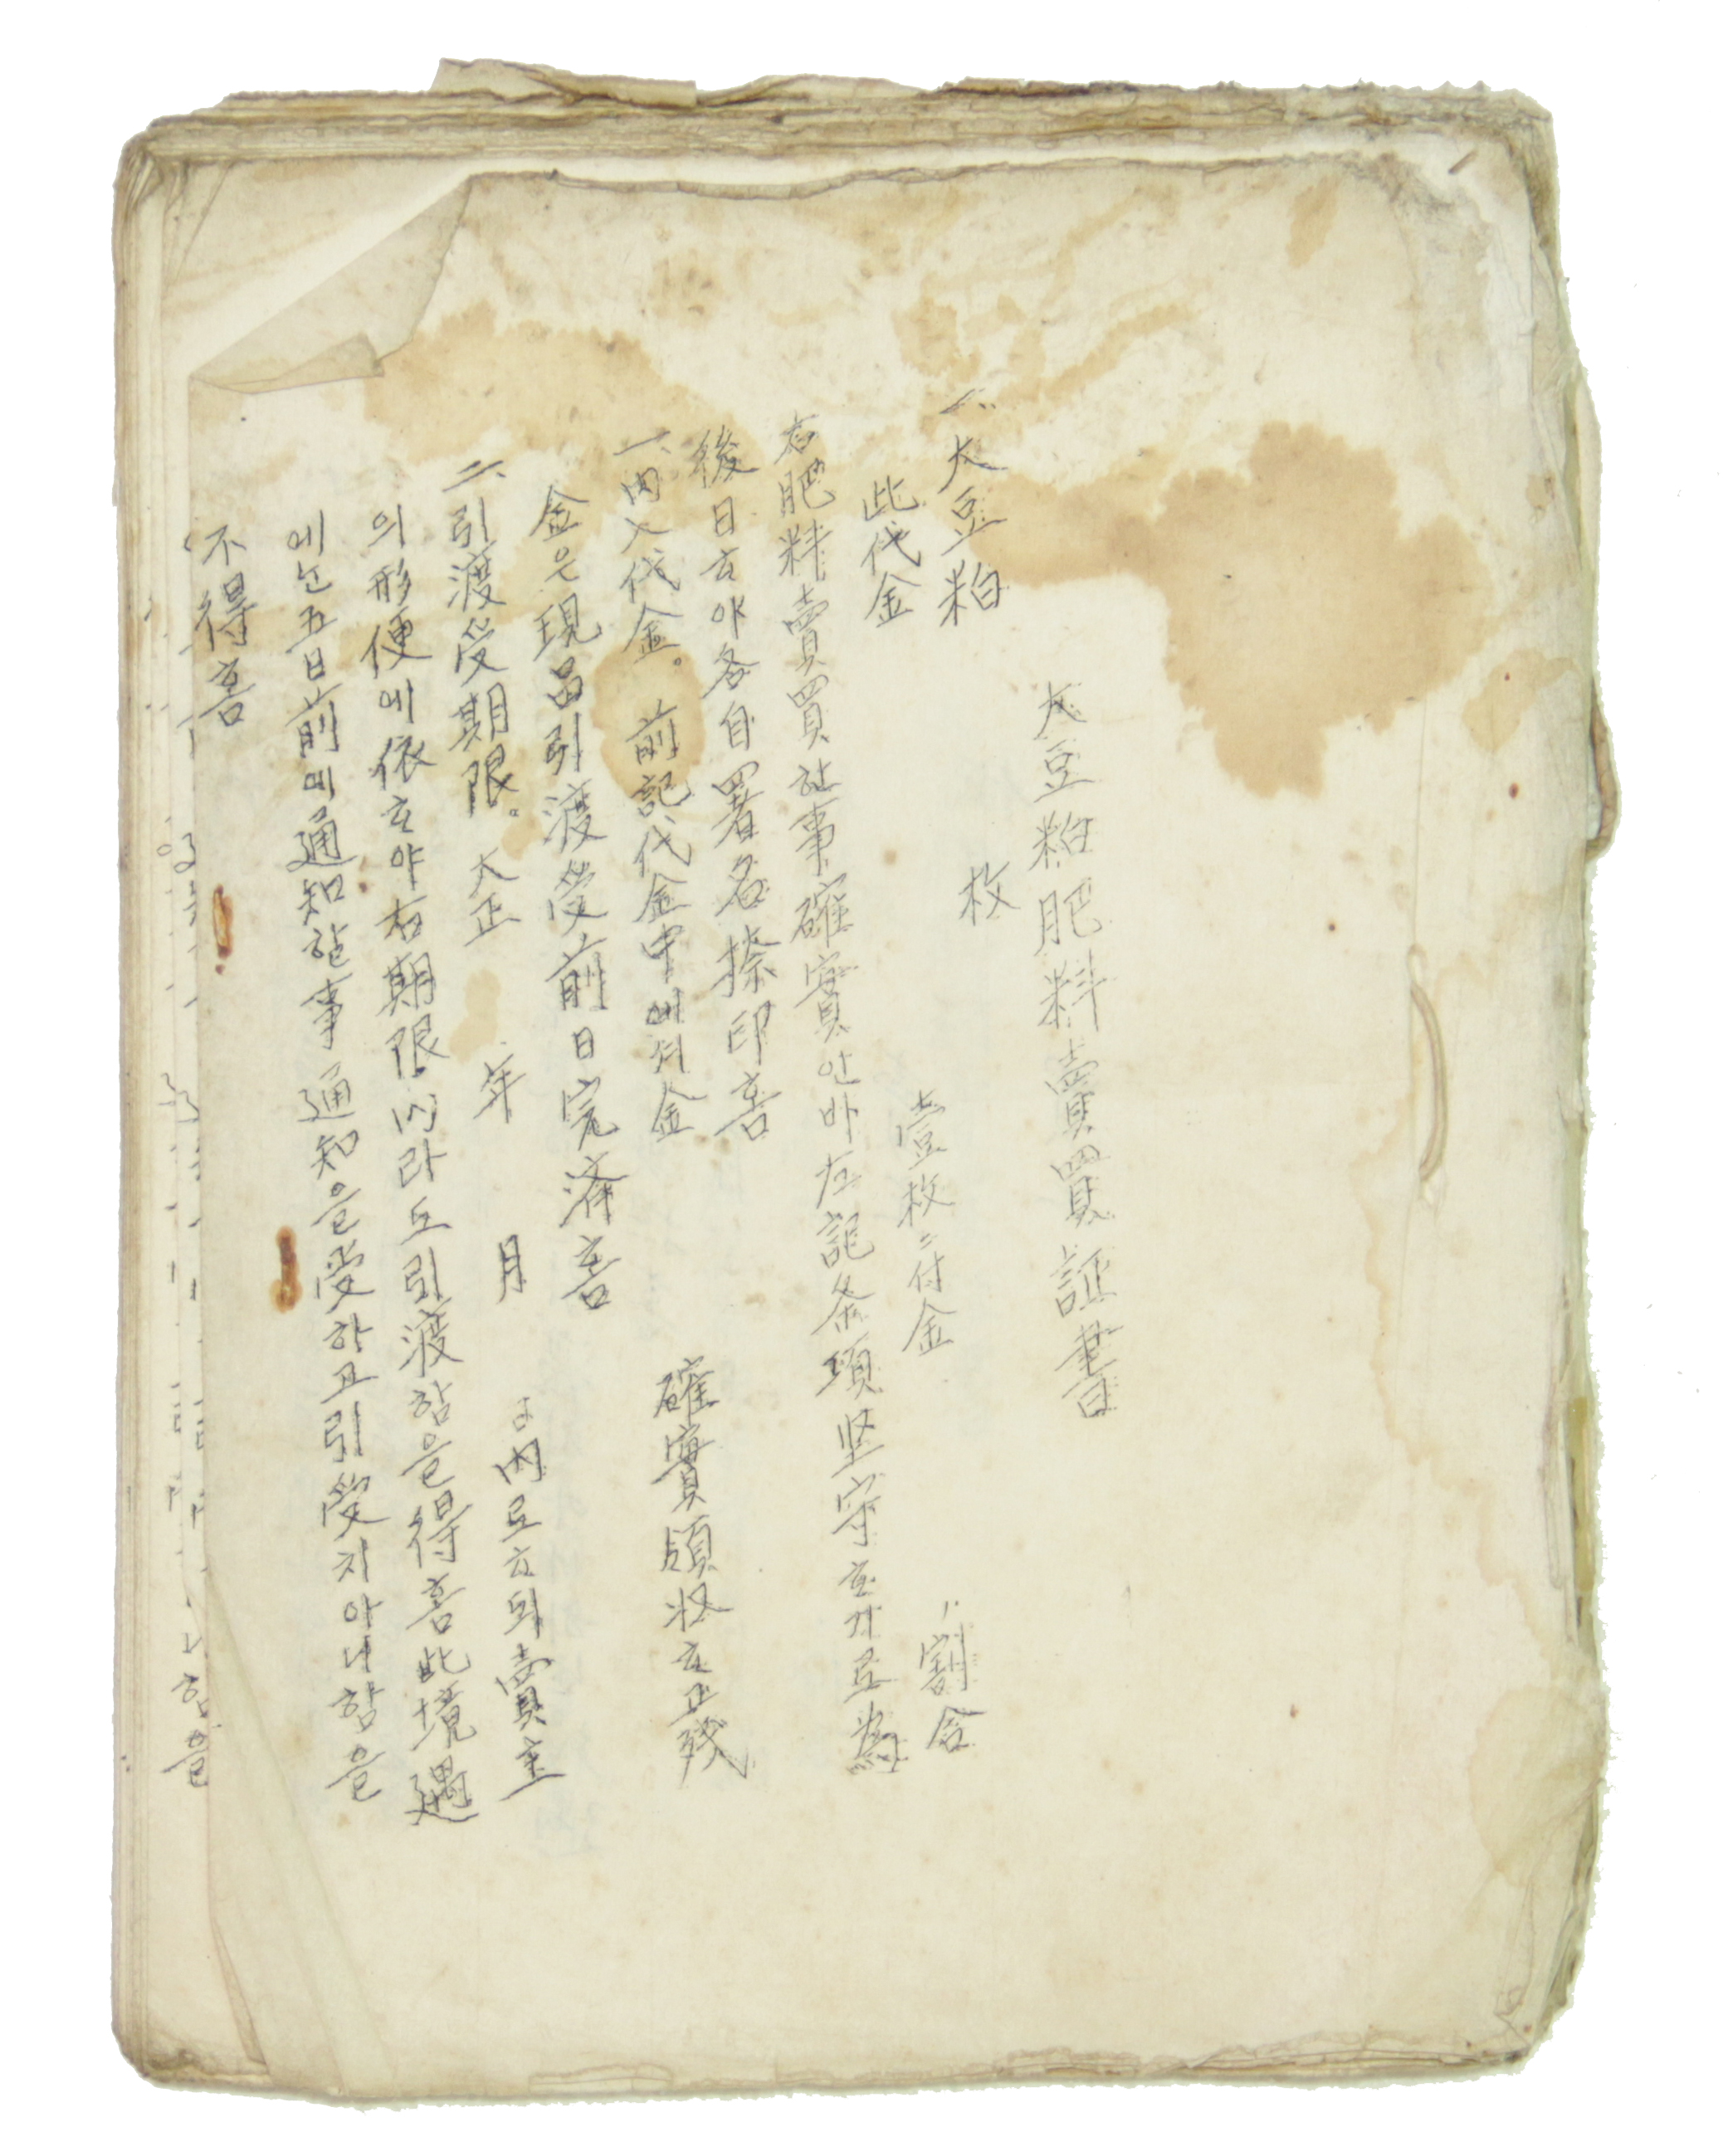 大豆粕肥料賣買証書
一、大豆粕 枚
此代金 壹枚ニ付金 割合
右肥料賣買한事確實인바左記条項坚守하기로為
後日하야各自署名捺印홈
一、内入代金。前記代金中에셔金 確實領收하고残
金은現品引渡受前日完濟홈
二、引渡受期限。大正 年 月 內로하되賣主
의形便에依하야右期限이라도引渡함을得홈此境遇
에난五日前에通知할事通知을受하고引受치아니함을
不得홈